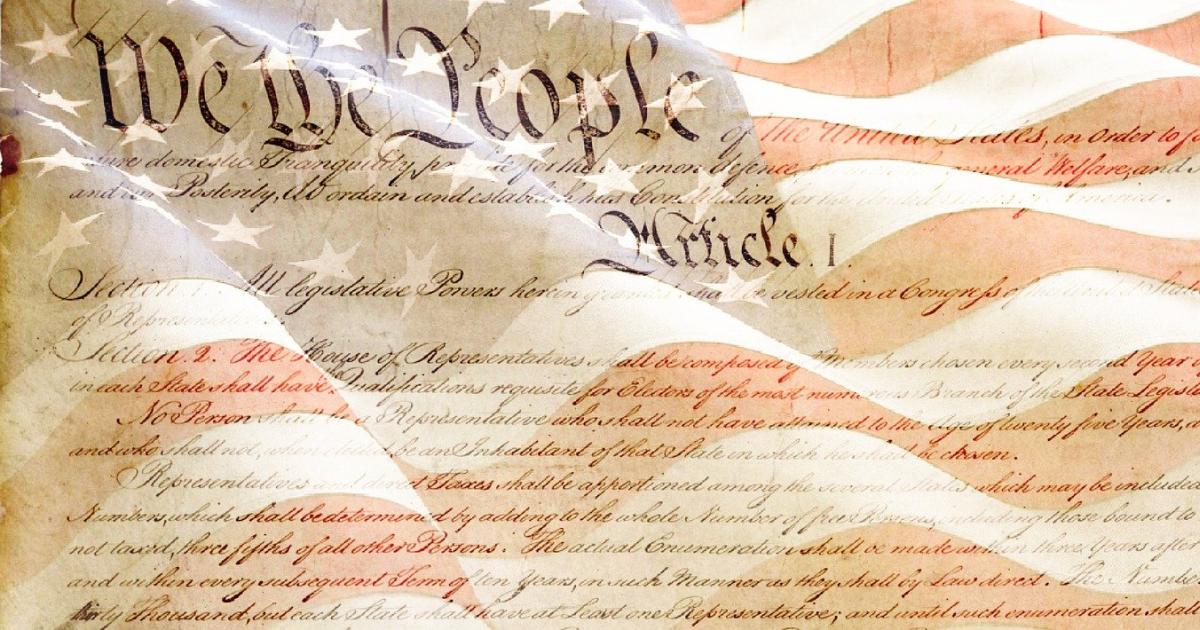 We the People of the United States, in order to
sure domestic Tranquility, provide for the common defence, general Welfare, and
and our Posterity, do ordain and establish this Constitution for the United States of America.
Article. I
Section. 1. All legislative Powers herein granted shall be vested in a Congress of the United States
of Representatives.
Section. 2. The House of Representatives shall be composed of Members chosen every second Year
in each State shall have Qualifications requisite for Electors of the most numerous Branch of the State Legis
No Person shall be a Representative who shall not have attained to the Age of twenty five Years,
and who shall not, when elected, be an Inhabitant of that State in which he shall be chosen.
Representatives and direct Taxes shall be apportioned among the several States which may be included
Numbers, which shall be determined by adding to the whole Number of free Persons, including those bound to
not taxed, three fifths of all other Persons. The actual Enumeration shall be made within three Years after
and within every subsequent Term of ten Years, in such Manner as they shall by Law direct. The Number
thirty Thousand, but each State shall have at Least one Representative; and until such enumeration shall